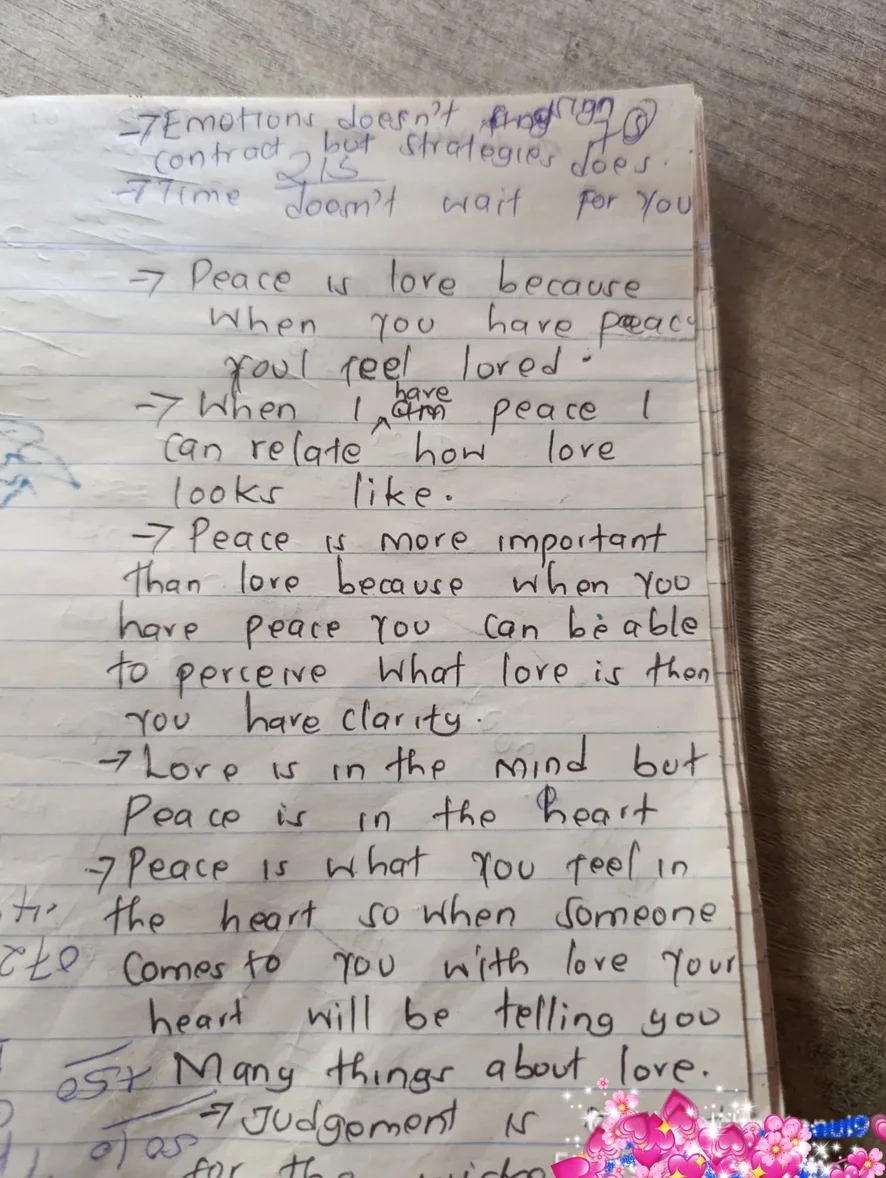 → Emotions doesn't sign
contract but strategies does.
215
→ Time doesn't wait for you
→ Peace is love because
When you have peace
youl feel loved.
→ When I have peace I
can relate how love
looks like.
→ Peace is more important
than love because when you
have peace you can be able
to perceive what love is then
you have clarity.
→ Love is in the mind but
Peace is in the heart
→ Peace is what you feel in
the heart so when someone
comes to you with love your
heart will be telling you
Many things about love.
→ Judgement is
for the
072
+50